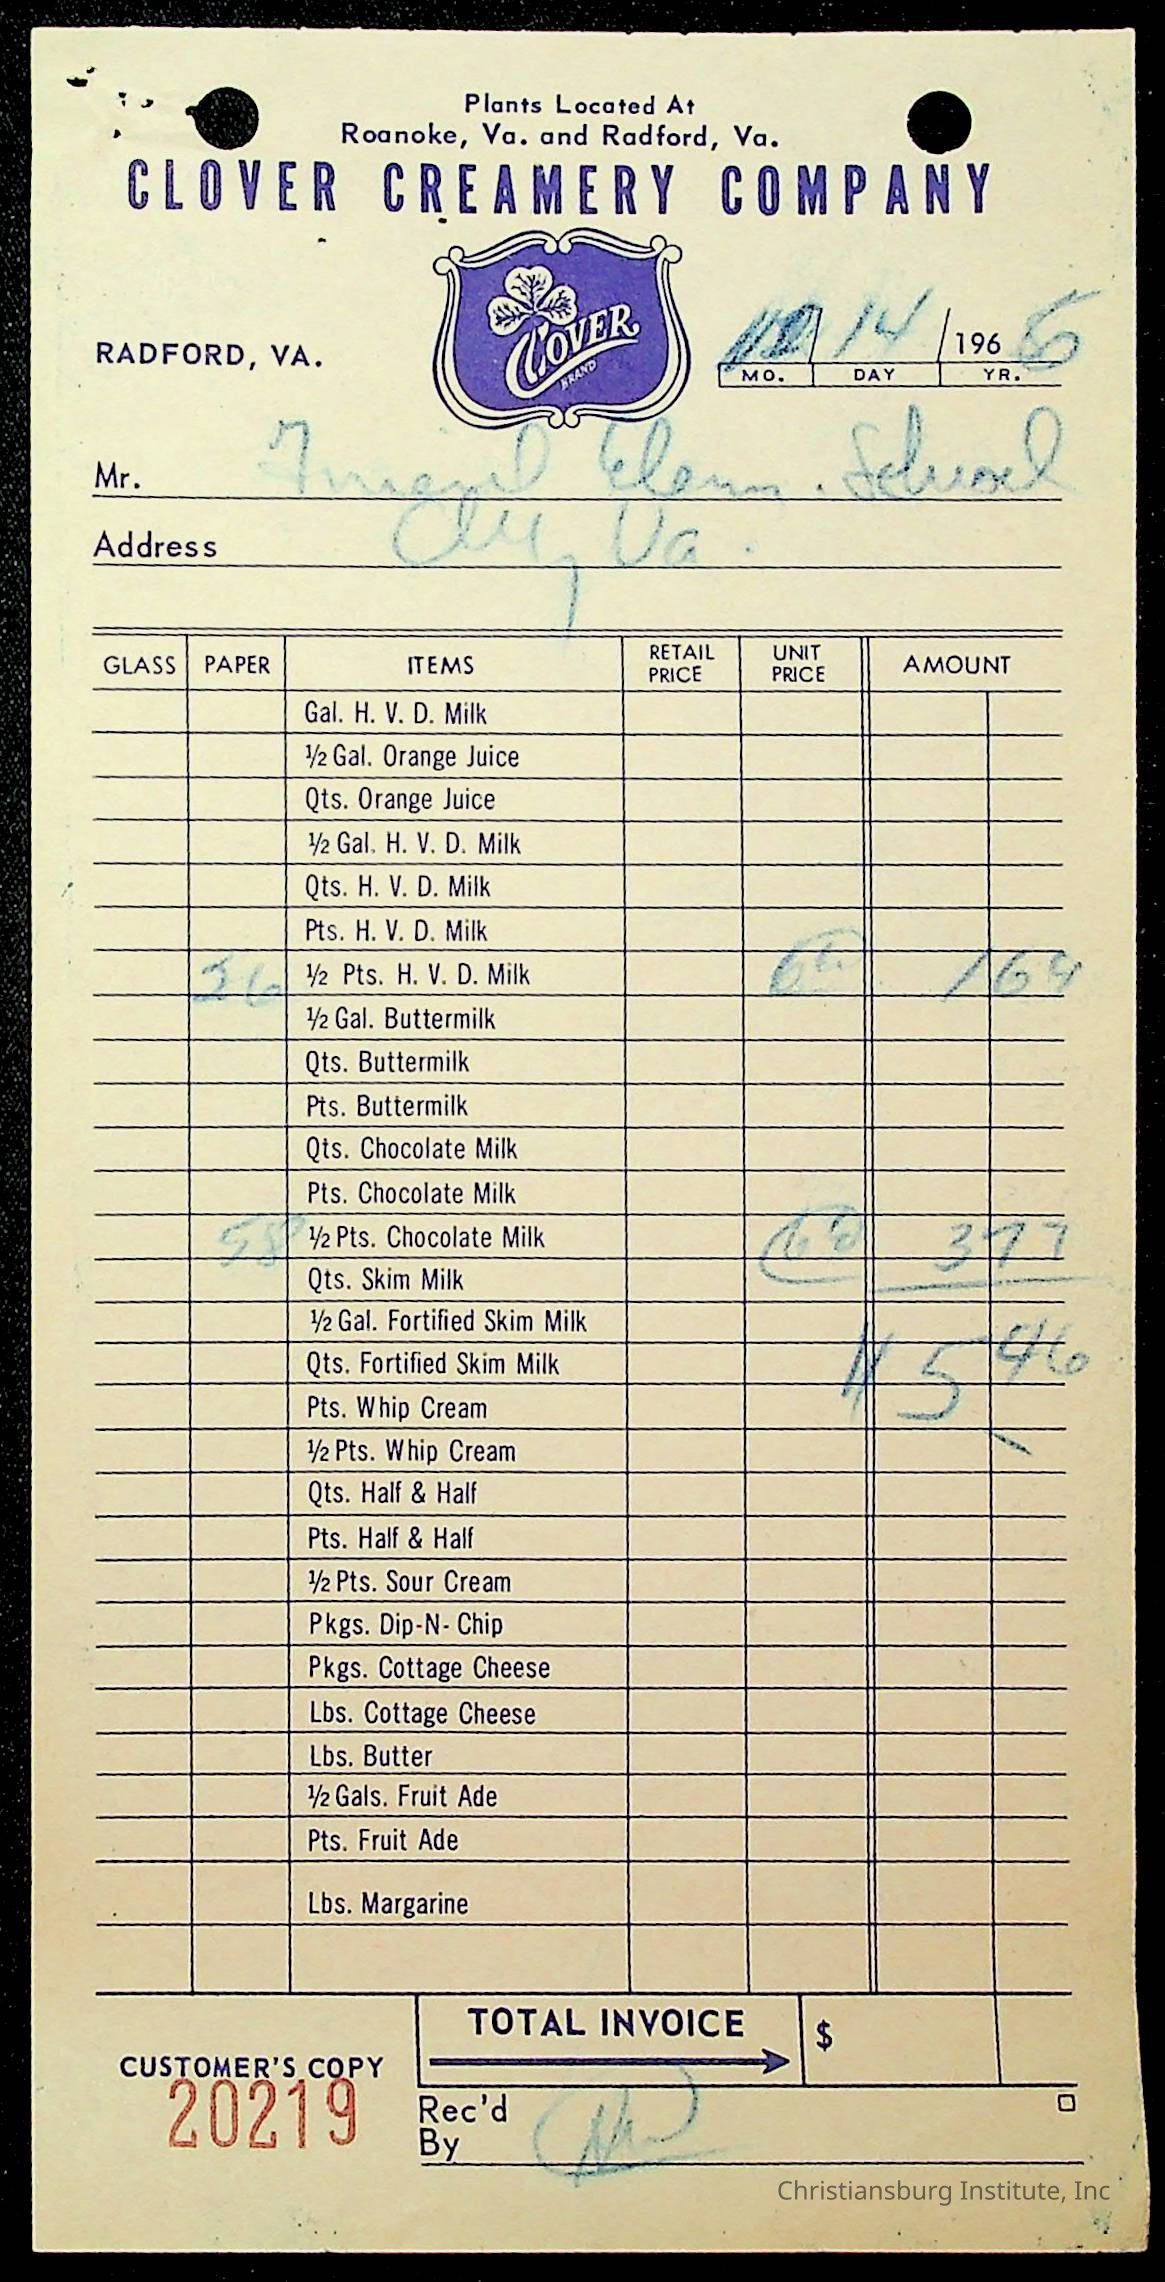 Plants Located At
Roanoke, Va. and Radford, Va.
CLOVER CREAMERY COMPANY
CLOVER
BRAND
RADFORD, VA.
10/14/1966
MO. DAY YR.
Mr. Friend Elem. School
Address Va.
GLASS PAPER ITEMS RETAIL PRICE UNIT PRICE AMOUNT
Gal. H. V. D. Milk
½ Gal. Orange Juice
Qts. Orange Juice
½ Gal. H. V. D. Milk
Qts. H. V. D. Milk
Pts. H. V. D. Milk
26 ½ Pts. H. V. D. Milk 1 69
½ Gal. Buttermilk
Qts. Buttermilk
Pts. Buttermilk
Qts. Chocolate Milk
Pts. Chocolate Milk
58 ½ Pts. Chocolate Milk 3 77
Qts. Skim Milk
½ Gal. Fortified Skim Milk
Qts. Fortified Skim Milk 5 46
Pts. Whip Cream
½ Pts. Whip Cream
Qts. Half & Half
Pts. Half & Half
½ Pts. Sour Cream
Pkgs. Dip-N-Chip
Pkgs. Cottage Cheese
Lbs. Cottage Cheese
Lbs. Butter
½ Gals. Fruit Ade
Pts. Fruit Ade
Lbs. Margarine
TOTAL INVOICE $
CUSTOMER'S COPY
20219
Rec'd
By
Christiansburg Institute, Inc